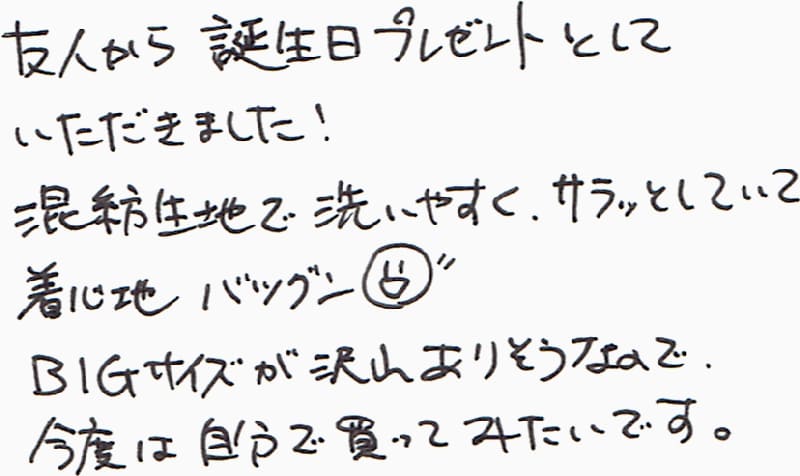 友人から誕生日プレゼントとして
いただきました!
混紡生地で洗いやすく、サラッとしていて
着心地バツグン
BIGサイズが沢山ありそうなので、
今度は自分で買ってみたいです。